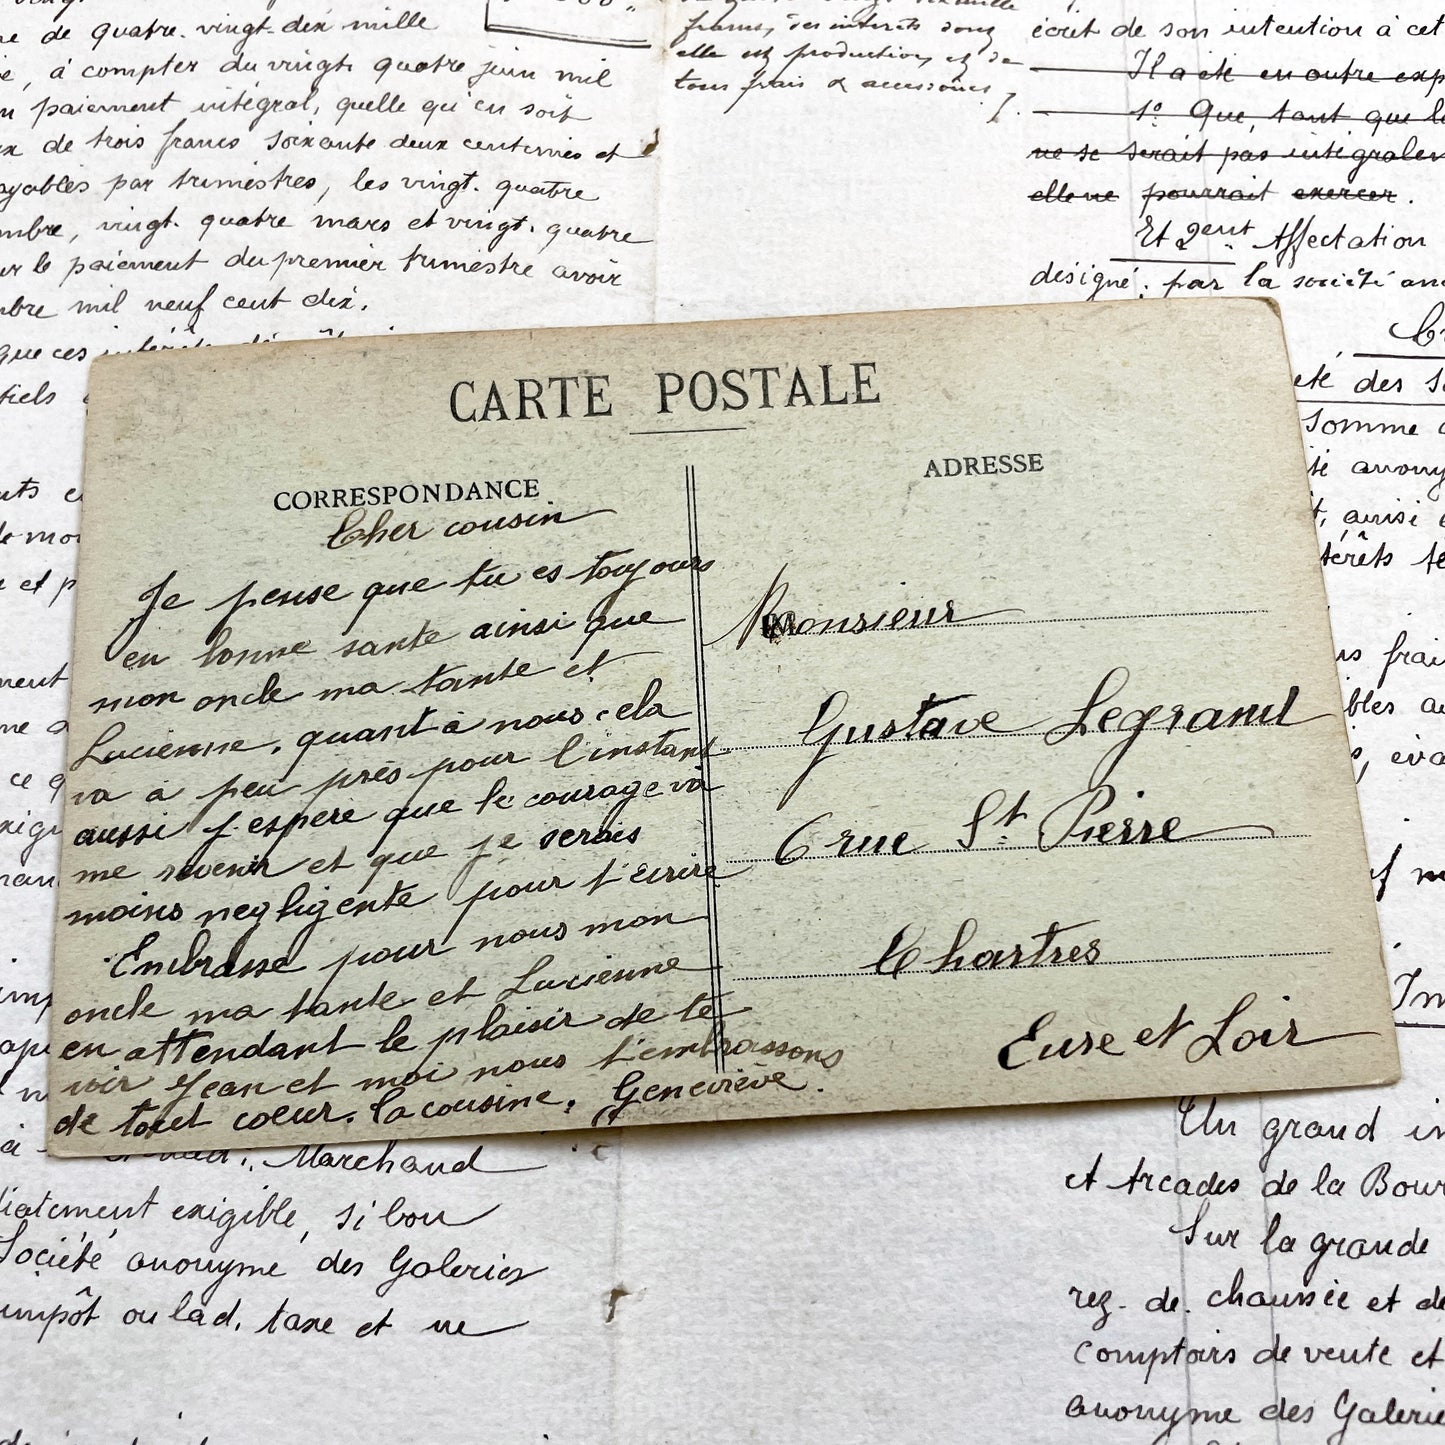 de quatre. vingt-dix mille
à compter du vingt quatre juin mil
paiement intégral, quelle qu'en soit
de trois francs soixante deux centimes et
par trimestres, les vingt. quatre
vingt. quatre mars et vingt. quatre
le paiement du premier trimestre avoir
mil neuf cent dix.
que ces
francs, ses intérêts
elle est production, et de
tous frais & accessoires
écrit de son intention à cet
Il a été en outre
1º Que, tant que
ne se serait pas
elle ne pourrait exercer.
Et 2ent Affectation
désigné, par la société
des
somme
CARTE POSTALE
CORRESPONDANCE
Cher cousin
Je pense que tu es toujours
en bonne sante ainsi que
mon oncle ma tante et
Lucienne, quant à nous cela
va à peu près pour l'instant
aussi j'espère que le courage va
me revenir et que je serais
moins negligente pour t'ecrire
Embrasse pour nous mon
oncle ma tante et Lucienne
en attendant le plaisir de te
voir Jean et moi nous t'embrassons
de tout coeur. la cousine, Geneviève.
ADRESSE
Monsieur
Gustave Legrand
6 rue St Pierre
Chartres
Eure et Loir
Marchand
exigible, si bon
Société anonyme des Galeries
impôt ou lad. taxe et ne
Un grand
et Arcades de la
Sur la grande
rez. de. chaussée et de
comptoirs de vente et
anonyme des Galeries